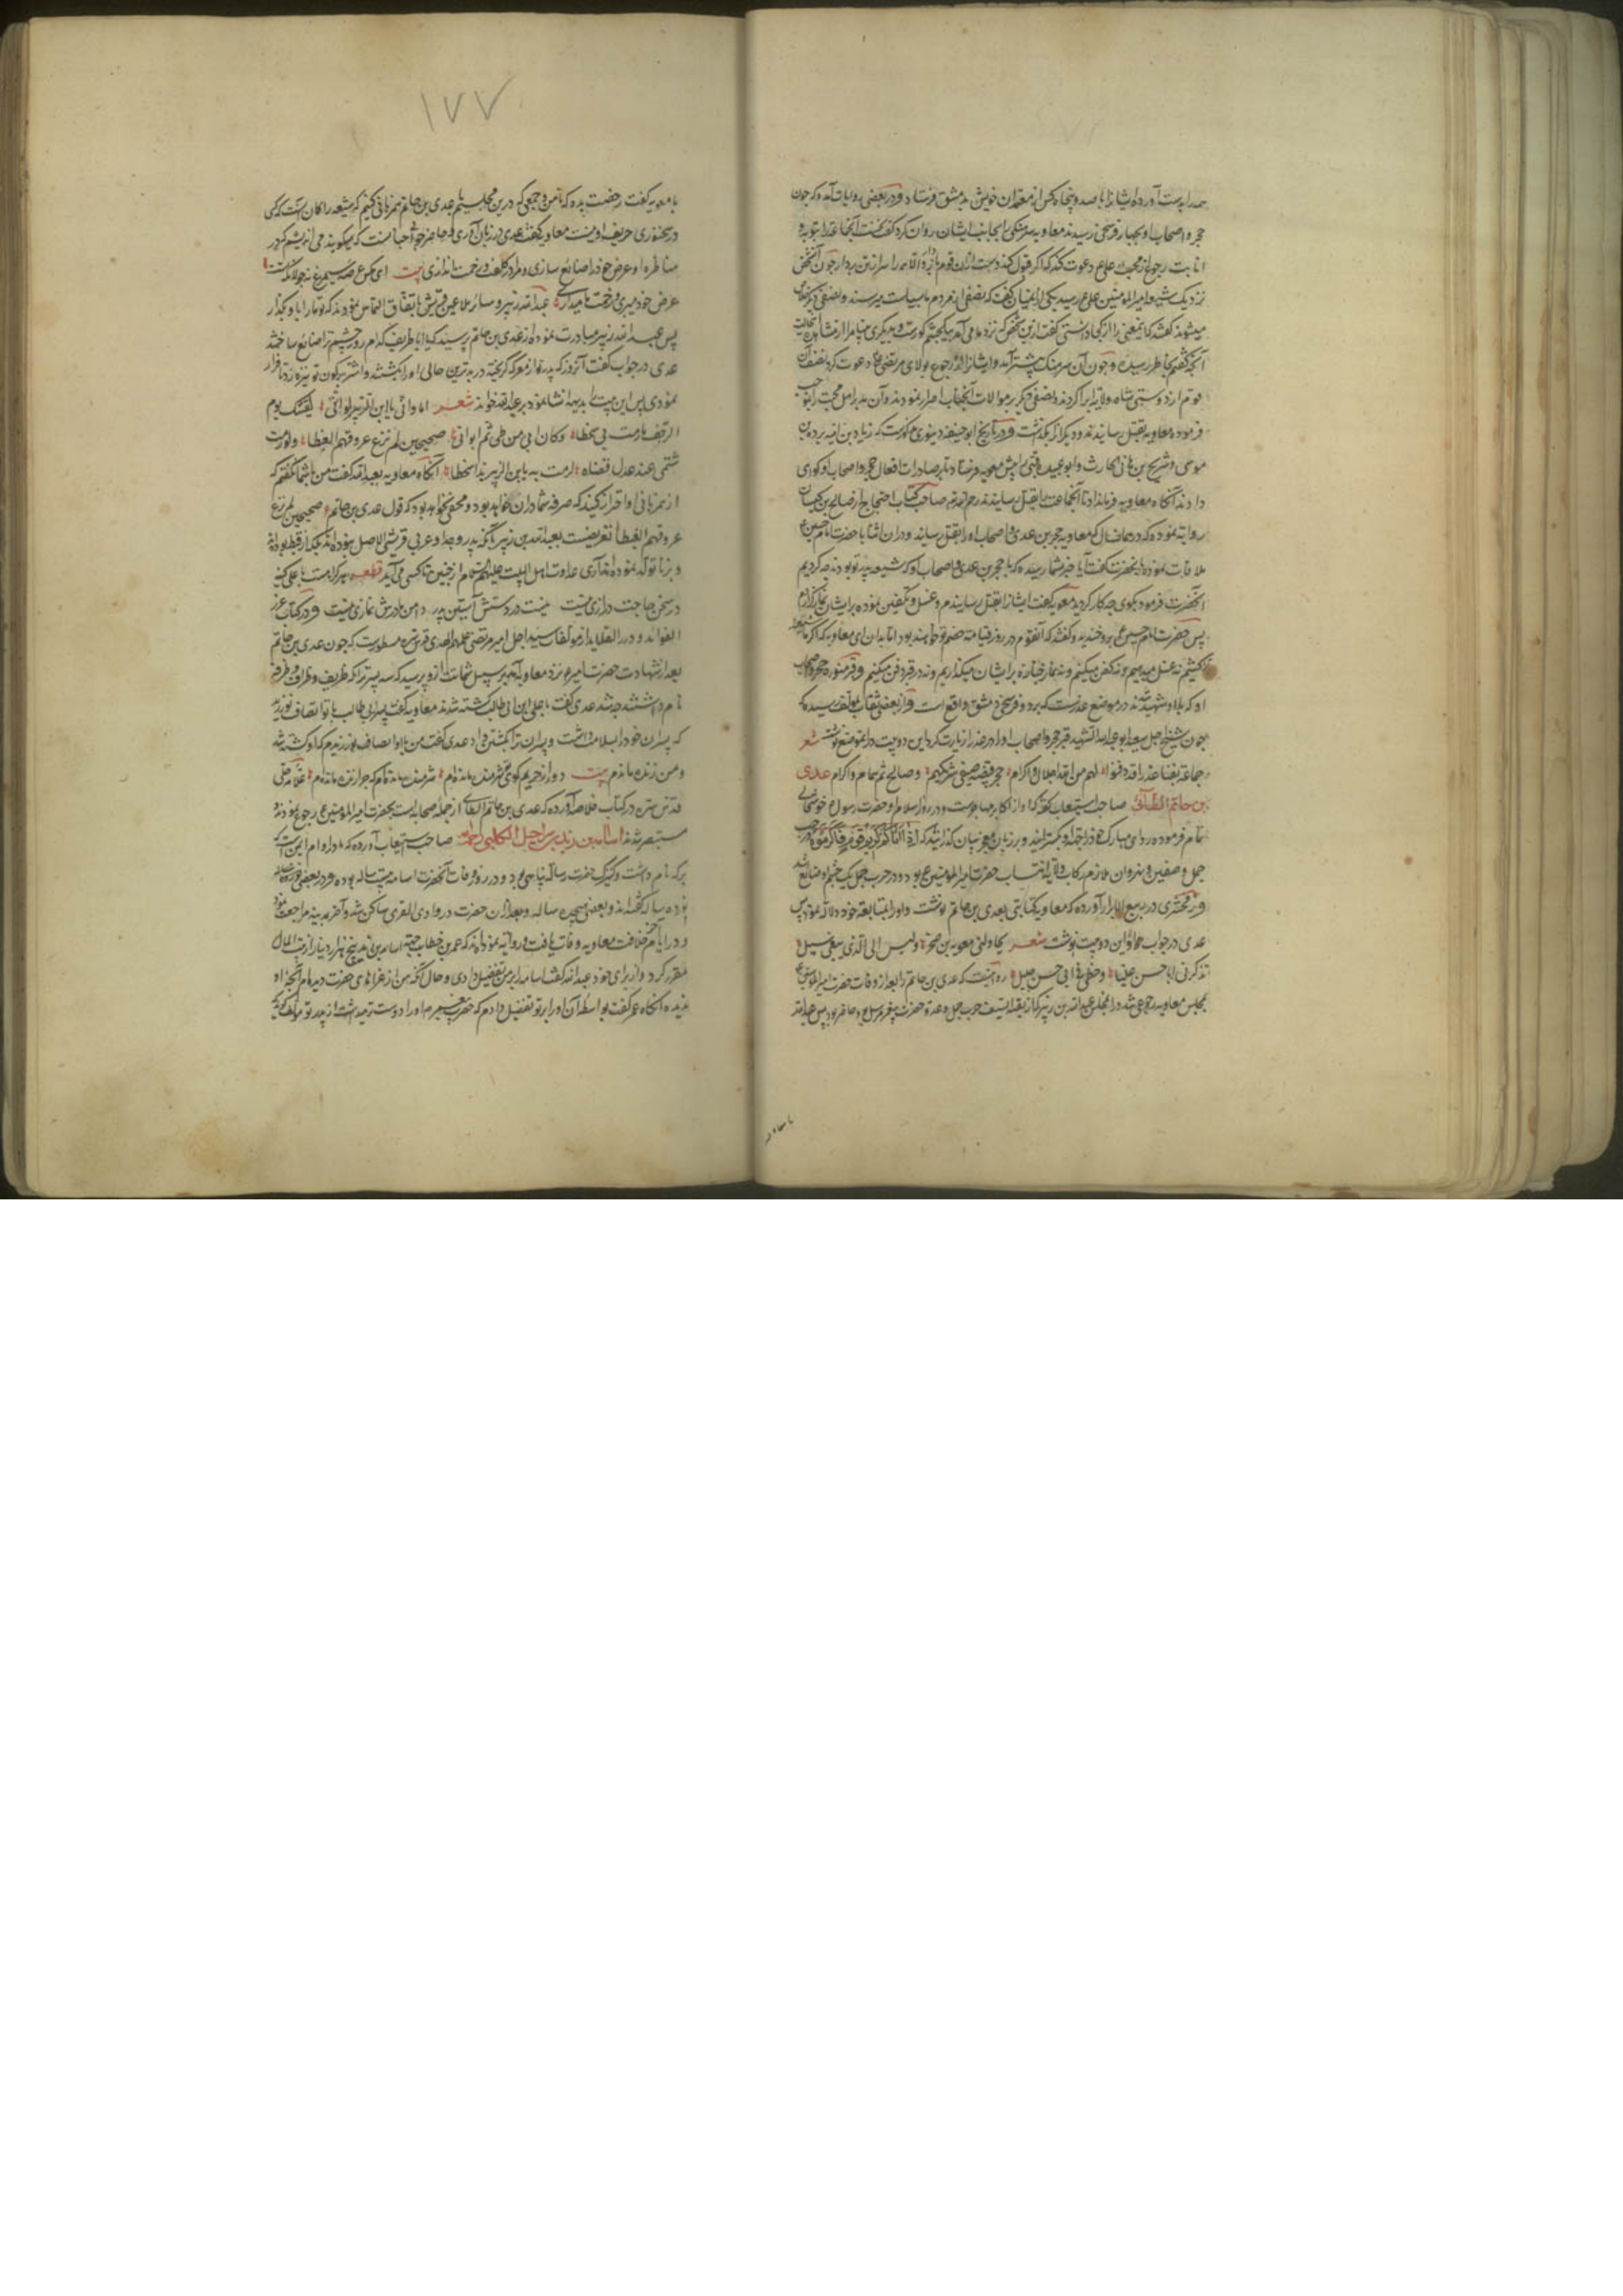 همه را بدست آورده ایشانرا با صد و پنجاه کس از معتمدان خویش بدمشق فرستاد و در بعضی روایات آمده که چون
حجر و اصحاب او بچهار فرسخی رسیدند معاویه سرهنگی را بجانب ایشان روان کرد گفت نخست آنجماعت را بتوبه و
انابت رجوع از محبت علی ع دعوت کند که اگر قبول کنند دست ازان قوم باز دار و الا همه را سر از تن بردار چون آن شخص
نزدیک شد و امیر المؤمنین علی ع رسید یکی از ایشان گفت که نصفی ازین مردم بما سیاست میرسند و نصفی دیگر خلاص
میشوند گفتند که اینمعنی را از کجا دانستی گفت ازین شخص که نزد ما می آید بیک چشم کورست و بدیگری بینا مرا از مشاهده
آنچه گفتم بخاطر رسیده و چون آن سرهنگ پیشتر آمد و ایشانرا از رجوع بولای مرتضی علی دعوت کرد نصف آن
قوم از دوستی شاه ولایت ابرا کردند و نصفی دیگر بر موالات آنجناب اصرار نمودند و آن مدبر اهل محبت را بموجب
فرموده معاویه بقتل رسانیدند و دیگرانرا بگذاشت و در تاریخ ابو حنیفه دینوری مذکورست که زیاد بن ابیه برده بن
موسی و شریح بن هانی الحارث و ابو عبیده قینی را پیش معویه فرستاد تا بر صادرات افعال حجر و اصحاب او گواهی
دادند آنگاه معاویه فرمانداد تا آنجماعت را بقتل رسانیدند رحمهم الله صاحب کتاب احتجاج از صالح بن کیسان
روایت نموده که در همانسال که معاویه حجر بن عدی و اصحاب او را بقتل رسانید و دران اثنا با حضرت امام حسین ع
ملاقات نموده بآنحضرت گفت آیا خبر بشما رسیده که با حجر بن عدی و اصحاب او که شیعه پدر تو بودند چه کردیم
آنحضرت فرمود بگوی چه کار کردید معویه گفت ایشانرا بقتل رسانیدم و غسل و تکفین نموده بر ایشان نماز گزاردم
پس حضرت امام حسین ع برو خندید و گفت که آنقوم در روز قیامت خصم تو خواهند بود اما بدان ای معاویه که اگر ما شیعه ترا
بکشیم نه غسل میدهیم و نه کفن میکنیم و نه نماز جنازه بر ایشان میگذاریم و نه در قبر دفن میکنیم و قبر منوره حجر و اصحاب
او که بلا و شهید شدند در موضع عذراست که بر دو فرسخی دمشق واقع است و از بعضی ثقات بمؤلف رسیده که
چون شیخ اجل سعید ابو عبد الله الشهید قبر حجر و اصحاب او را در عذرا زیارت کرد این دو بیت در انموضع نوشت شعر
جماعة بفنا عذرا قد دفنوا لهم من الله اجلال و اکرام حجر قبیصه صیفی شریکهم و صالح ثم همام و اکرام عدی
بن حاتم الطائی صاحب استیعاب گفته که او از اکابر مهاجرست و در روز اسلام او حضرت رسول ع خوشحالی
تمام فرموده ردای مبارک خود از جهت او بگسترانید و بر زبان معجز بیان گذرانید که اذا اتاکم کریم قوم فاکرموه و در حرب
جمل و صفین و نهروان ملازم رکاب ولایت انتساب حضرت امیر المؤمنین ع بود و در حرب جمل یک چشم او ضایع شد
و زمخشری در ربیع الابرار آورده که معاویه کتابتی بعدی بن حاتم نوشت و او را بمتابعت خود دلالت نمود پس
عدی در جواب او این دو بیت نوشت شعر یحاولنی معویة بن صخر و لیس الی الذی یبغی سبیل
تذکرنی ابا حسن علیا و حظی فی ابی حسن جلیل روایتست که عدی بن حاتم را بعد از وفات حضرت امیر المؤمنین ع
بمجلس معاویه رجوعی شد و در انمجلس عبد الله بن زبیر که از بقیة السیف حرب جمل و عدوه حضرت پیغمبر مرسل بود حاضر بود پس عبد الله
با معاویه
۱۷۷
با معویه گفت رخصت بده که تا من و جمعی که درین مجلسیم با عدی بن حاتم همزبانی کنیم که شیعه را گمان آنست که کسی
در سخنوری حریف او نیست معاویه گفت عدی در زبان آوری و حاضر جوابی همانست که میگویند می اندیشم که در
مناظره او عرض خود را ضایع سازی و ما را در کلفت و زحمت اندازی بیت ای مگس عرصه سیمرغ نه جولانگه تست
عرض خود میبری و زحمت ما میداری عبد الله زبیر و سائر ملاعین قریش باتفاق التماس نمودند که تو ما را با او بگذار
پس عبد الله زبیر مبادرت نموده از عدی بن حاتم پرسید که یا ابا طریف کدام روز چشم ترا ضایع ساختند
عدی در جواب گفت آنروز که پدرت از معرکه گریخته در بدترین حالی او را بکشتند و اشتر بر کون تو نیزه زد تا فرار
نمودی پس این بیت بدیهه انشا نموده بر عبد الله خواند شعر اما و ابی یا ابن الزبیر لو اننی لقیتک یوم
الزحف ما رمت لی سخطا و کان ابی من طی ثم ابو ابی صحیحین لم تنزع عروقهم القبطا و لو رمت
شتمی عند عدل قضاؤه لرمت به یا ابن الزبیر مدا شحطا آنگاه معاویه بعبد الله گفت من با شما گفتم که
از همزبانی او احتراز کنید که صرفه شما دران نخواهد بود و مخفی نخواهد بود که قول عدی بن حاتم صحیحین لم تنزع
عروقهم القبطا تعریضست بعبد الله بن زبیر بآنکه پدر و جد او عربی قرشی الاصل نبوده اند بلکه از قبط بوده اند
و بزنا تولد نموده اند آری عداوت اهل البیت علیهم السلام از چنین ناکسی می آید قطعه هر کرا هست با علی کینه
در سخن حاجت درازی نیست نیست در دستش آستین پدر دامن مادرش نمازی نیست و در کتاب غرر
الفوائد و درر القلاید از مؤلفات سید اجل امیر مرتضی علم الهدی قدس سره مسطورست که چون عدی بن حاتم
بعد از شهادت حضرت امیر ع نزد معاویه آمد بر سبیل شماتت ازو پرسید که سه پسر ترا که طریف و طراف و طرفه
نام داشتند چه شد عدی گفت با علی ابن ابی طالب کشته شدند معاویه گفت پسر ابی طالب با تو انصاف نورزید
که پسران خود را بسلامت داشت و پسران ترا بکشتن داد عدی گفت من با او انصاف نورزیدم که او کشته شد
و من زنده ماندم بیت دور از حریم کوی تو شرمنده مانده ام شرمنده مانده ام که چرا زنده مانده ام علامه حلی
قدس سره در کتاب خلاصه آورده که عدی بن حاتم الطائی از جمله صحابه است بحضرت امیر المؤمنین ع رجوع نموده
مستبصر شدند اسامة بن زید بن شراحیل الکلبی رحمه الله صاحب استیعاب آورده که مادر او ام ایمن است که
برکه نام داشت و کنیزک حضرت رسالت پناهی بود و در روز وفات آنحضرت اسامه بیست ساله بوده و در بعضی نوزده ساله
بوده ساله گفته اند و بعضی هیجده ساله و بعد ازان حضرت در وادی القری ساکن شد و آخر بمدینه مراجعت نمود
و در ایام خلافت معاویه وفات یافت و روایت نموده اند که عمر بن خطاب جهت اسامه بن زید پنج هزار دینار از بیت المال
مقرر کرد و از برای خود عبد الله گفت اسامه را بر من تفضیل دادی و حال آنکه من از غزاهای حضرت دیده ام آنچه او
ندیده آنگاه عمر گفت بواسطه آن او را بر تو تفضیل دادم که حضرت پیغمبر ص او را دوست تر میداشت از پدر تو مؤلف گوید که